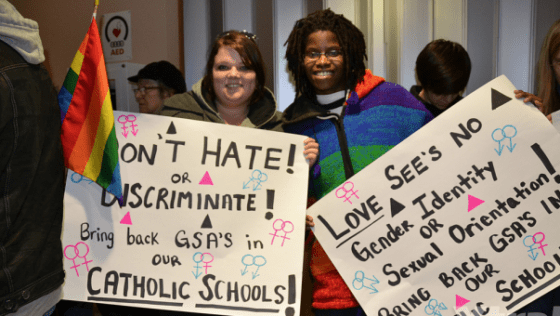 AED
DON'T HATE!
OR
DISCRIMINATE!
Bring back GSA's in
our
CATHOLIC SCHOOLS!
LOVE SEE'S NO
Gender Identity
OR
Sexual Orientation!
BRING BACK GSA'S IN
OUR
SCHOOLS